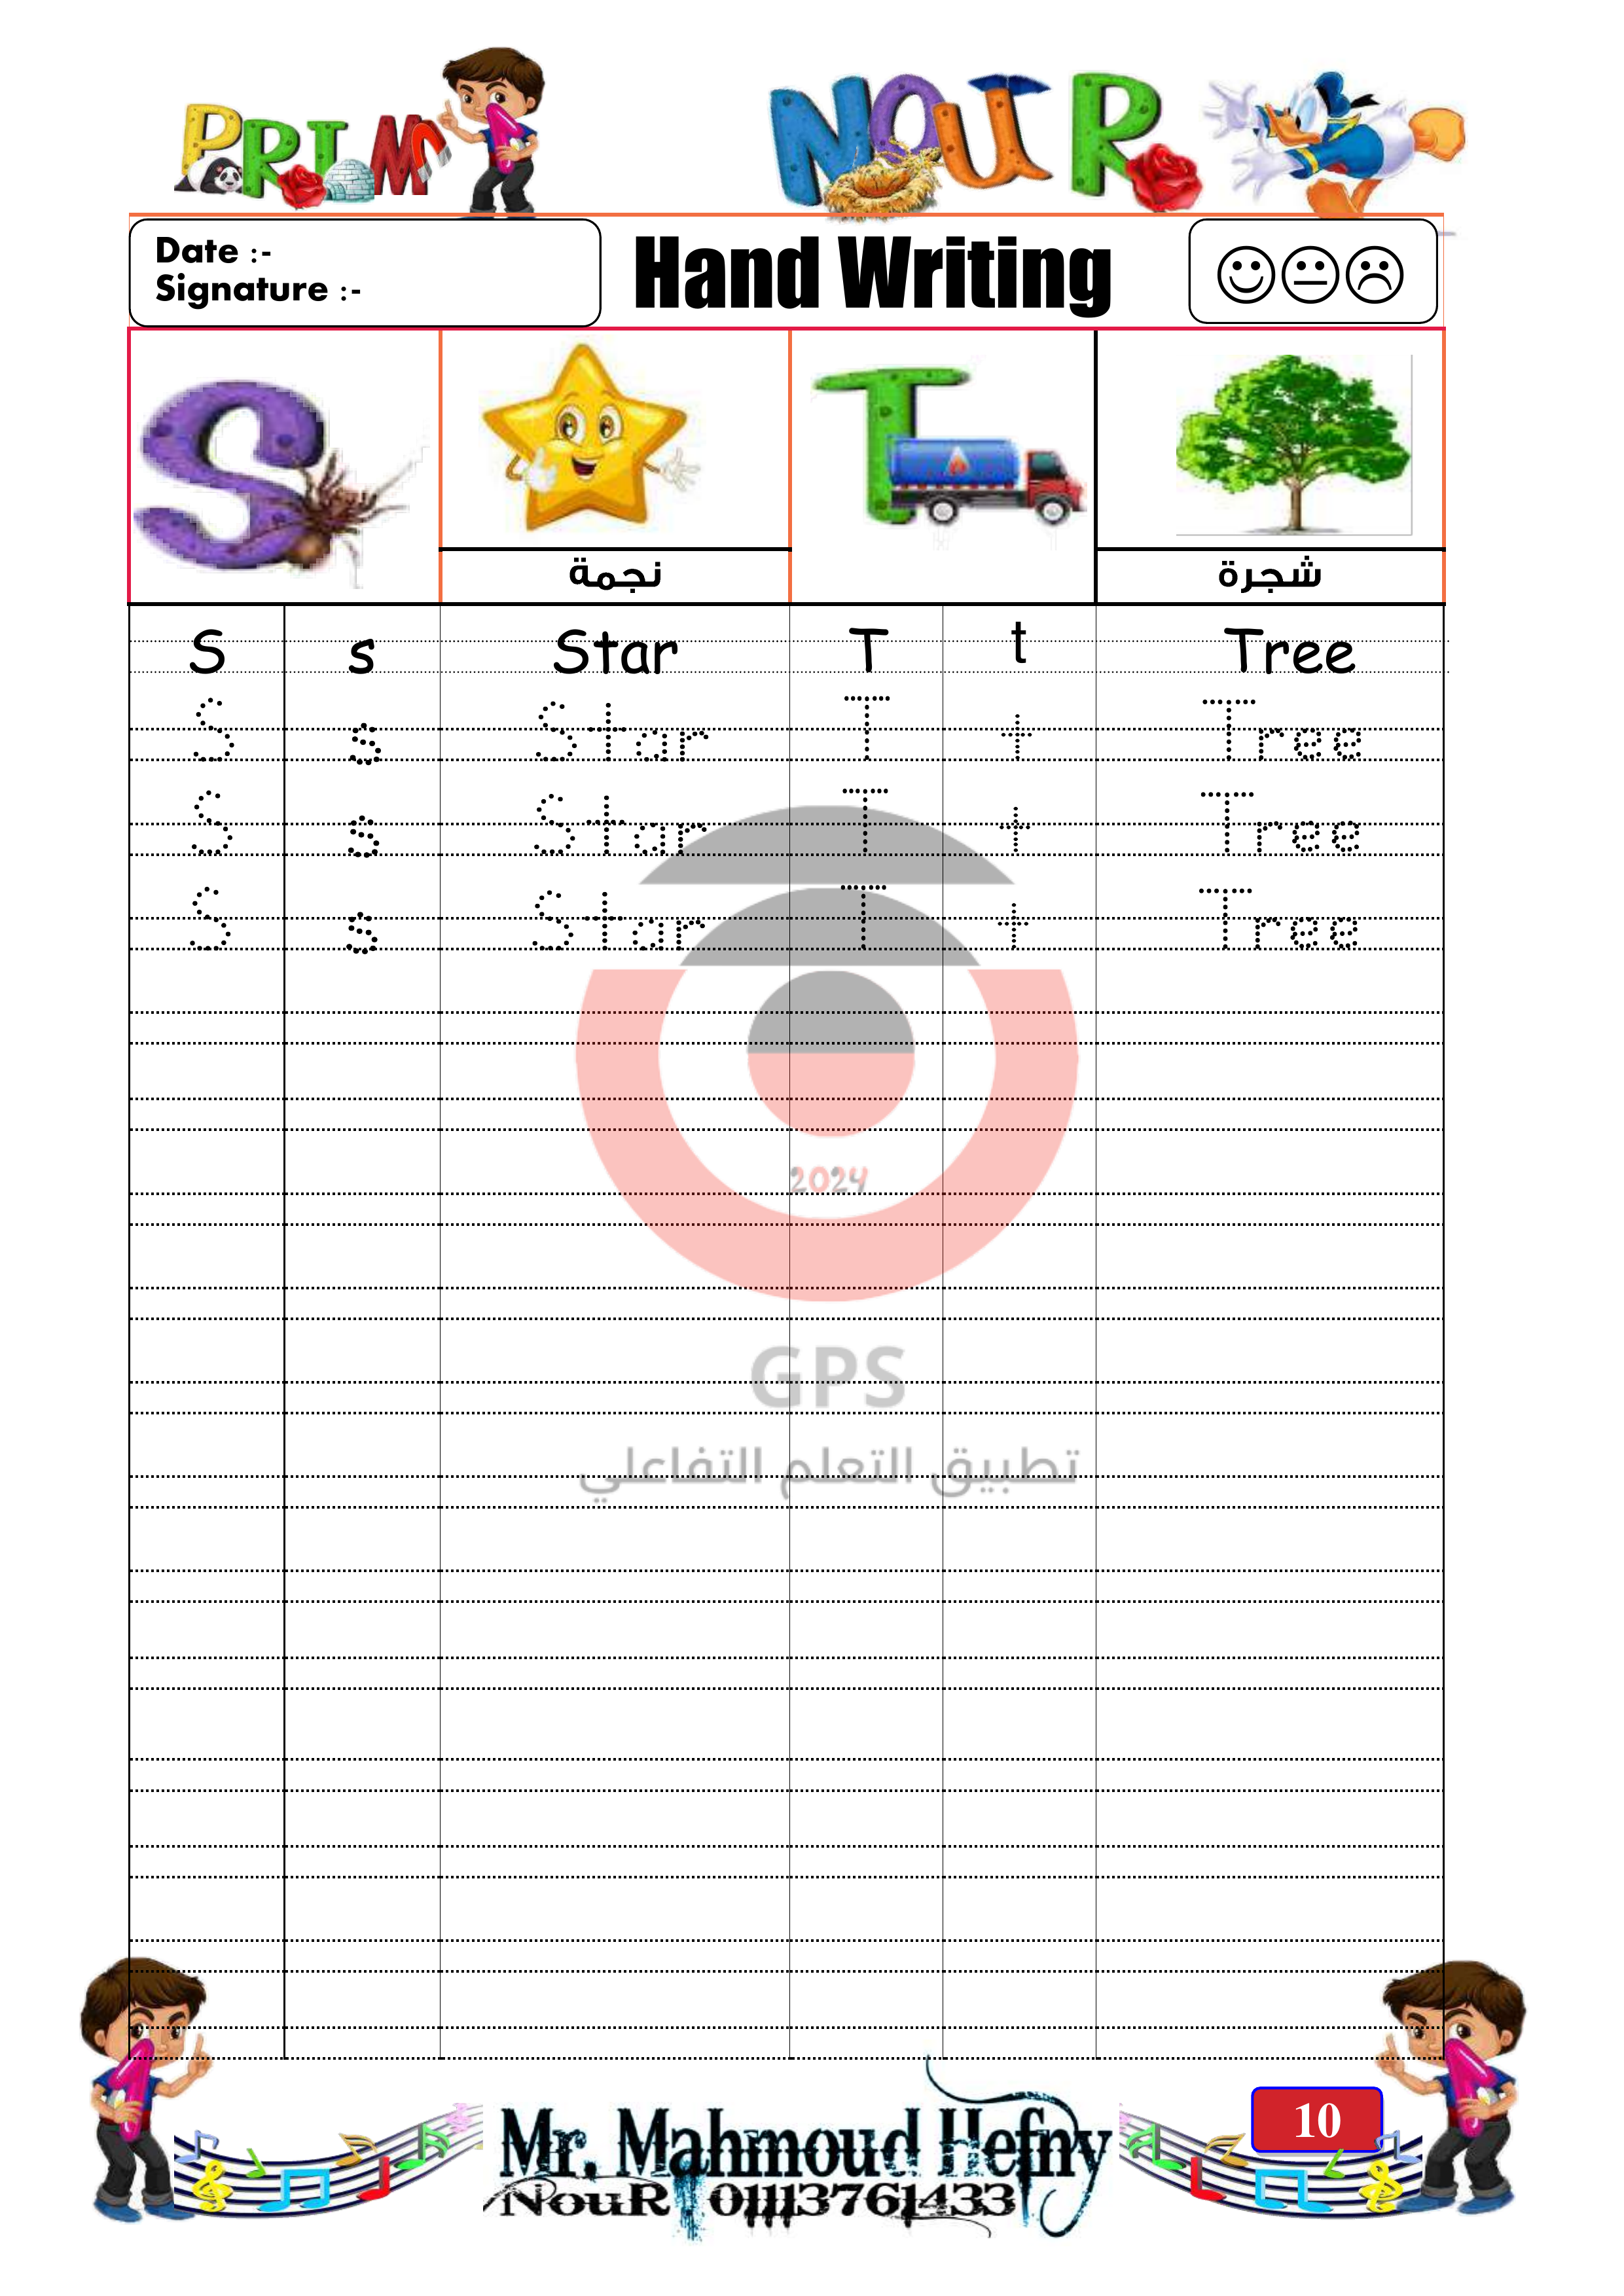 PRIM 1
NOUR
Date :-
Signature :-
Hand Writing
S
T
نجمة
شجرة
S s Star T t Tree
S s Star T t Tree
S s Star T t Tree
S s Star T t Tree
2024
GPS
تطبيق التعلم التفاعلي
Mr. Mahmoud Hefny
NouR : 01113761433
10